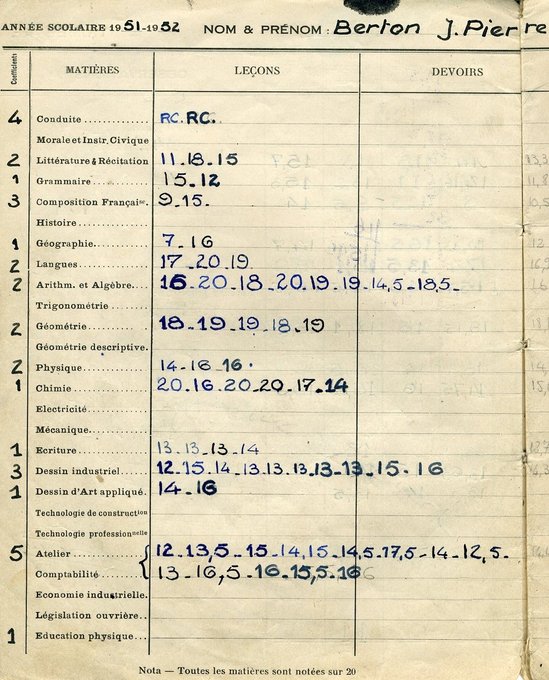 ANNÉE SCOLAIRE 1951-1952 NOM & PRÉNOM : Berton J. Pierre
Coefficients MATIÈRES LEÇONS DEVOIRS
4 Conduite RC. RC.
Morale et Instr. Civique
2 Littérature & Récitation 11.18.15
1 Grammaire 15.12
3 Composition Française. 9.15.
Histoire
1 Géographie 7.16
2 Langues 17_20.19
2 Arithm. et Algèbre 16_20_18_20.19_19_14,5_18,5_
Trigonométrie
2 Géométrie 18_19_19_18_19
Géométrie descriptive.
2 Physique 14_16 16.
1 Chimie 20.16_20_20_17_14
Electricité
Mécanique
1 Ecriture 13_13_13_14
3 Dessin industriel 12.15_14_13.13.13_13_13_15_16
1 Dessin d'Art appliqué. 14_16
Technologie de construction
Technologie professionnelle
5 Atelier 12_13,5_15_14,15_14,5_17,5_14_12,5_
Comptabilité 13_16,5_16_15,5_16
Economie industrielle.
Législation ouvrière
1 Education physique
Nota — Toutes les matières sont notées sur 20